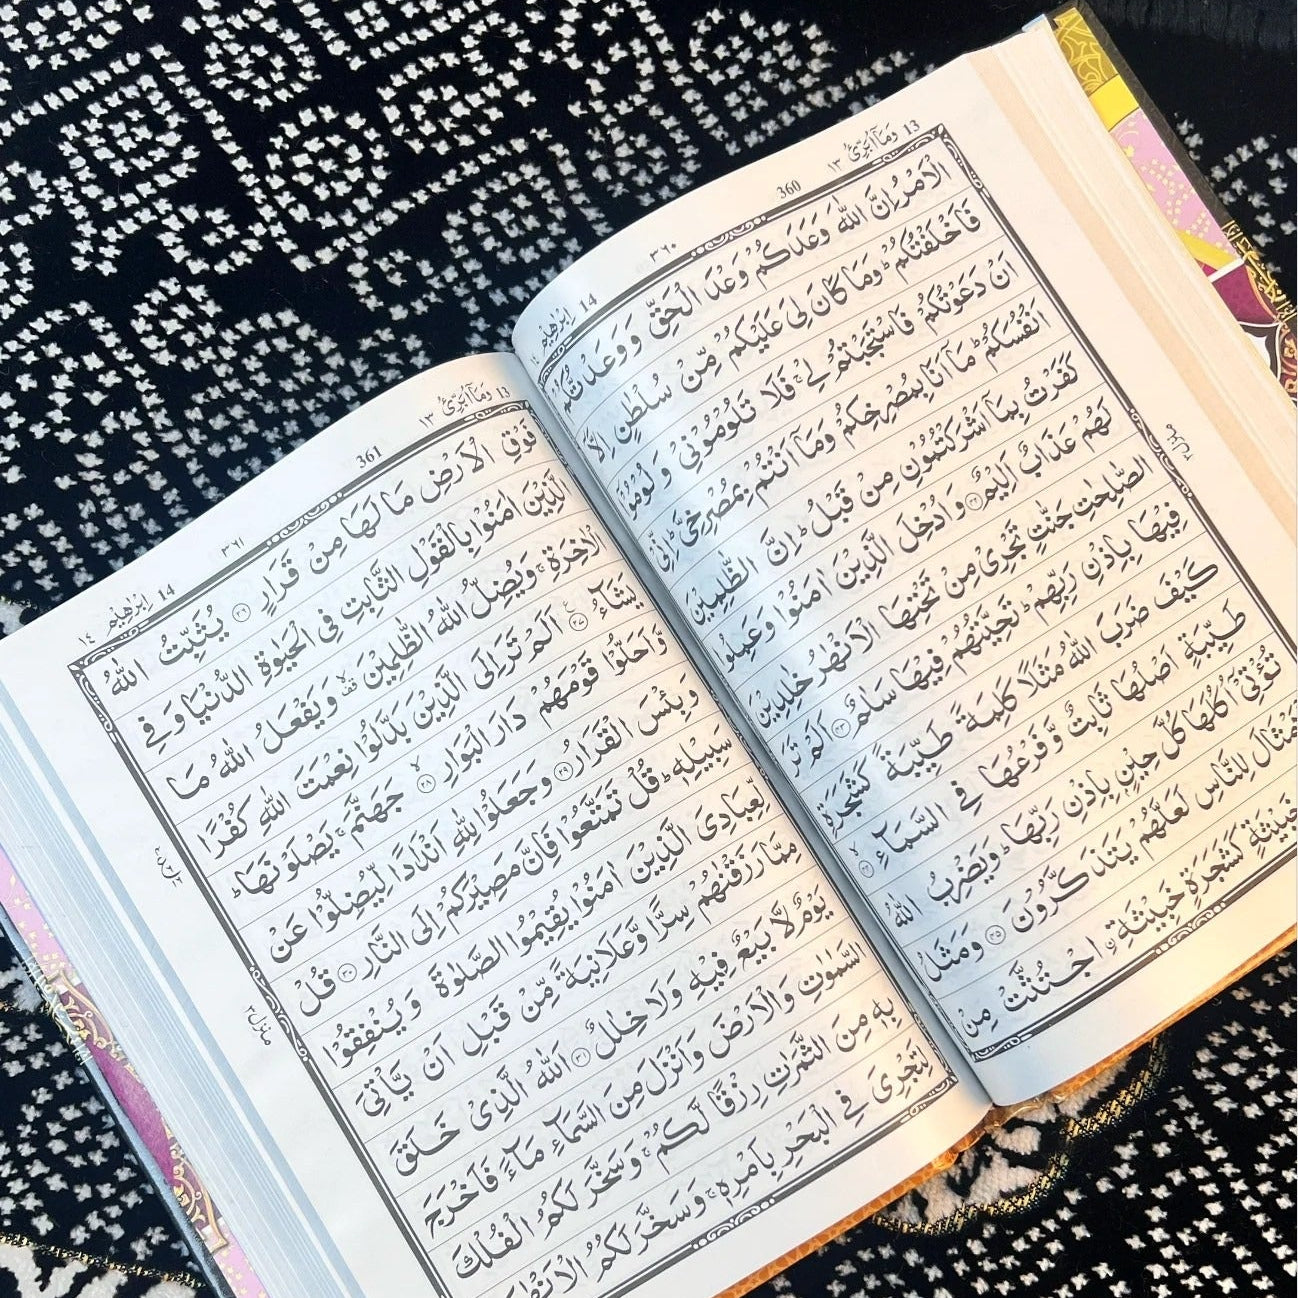 13 وَمَآ اُبَرِّئُ ١٣
360
٣٦٠
14 اِبْرٰهِيْم ١٤
الْاَمْرُ اِنَّ اللّٰهَ وَعَدَكُمْ وَعْدَ الْحَقِّ وَوَعَدْتُّكُمْ
فَاَخْلَفْتُكُمْ ؕ وَمَا كَانَ لِيَ عَلَيْكُمْ مِّنْ سُلْطٰنٍ اِلَّاۤ
اَنْ دَعَوْتُكُمْ فَاسْتَجَبْتُمْ لِيْ ۚ فَلَا تَلُوْمُوْنِيْ وَلُوْمُوْۤا
اَنْفُسَكُمْ ؕ مَاۤ اَنَا بِمُصْرِخِكُمْ وَمَاۤ اَنْتُمْ بِمُصْرِخِيَّ ؕ اِنِّيْ
كَفَرْتُ بِمَاۤ اَشْرَكْتُمُوْنِ مِنْ قَبْلُ ؕ اِنَّ الظّٰلِمِيْنَ
لَهُمْ عَذَابٌ اَلِيْمٌ ﴿٢٢﴾ وَاُدْخِلَ الَّذِيْنَ اٰمَنُوْا وَعَمِلُوا
الصّٰلِحٰتِ جَنّٰتٍ تَجْرِيْ مِنْ تَحْتِهَا الْاَنْهٰرُ خٰلِدِيْنَ
فِيْهَا بِاِذْنِ رَبِّهِمْ ؕ تَحِيَّتُهُمْ فِيْهَا سَلٰمٌ ﴿٢٣﴾ اَلَمْ تَرَ
كَيْفَ ضَرَبَ اللّٰهُ مَثَلًا كَلِمَةً طَيِّبَةً كَشَجَرَةٍ
طَيِّبَةٍ اَصْلُهَا ثَابِتٌ وَّفَرْعُهَا فِي السَّمَآءِ ﴿٢٤﴾
تُؤْتِيْۤ اُكُلَهَا كُلَّ حِيْنٍۢ بِاِذْنِ رَبِّهَا ؕ وَيَضْرِبُ اللّٰهُ
الْاَمْثَالَ لِلنَّاسِ لَعَلَّهُمْ يَتَذَكَّرُوْنَ ﴿٢٥﴾ وَمَثَلُ
خَبِيْثَةٍ كَشَجَرَةٍ خَبِيْثَةِ اۨجْتُثَّتْ مِنْ
منزل ٣
13 وَمَآ اُبَرِّئُ ١٣
361
٣٦١
14 اِبْرٰهِيْم ١٤
فَوْقِ الْاَرْضِ مَا لَهَا مِنْ قَرَارٍ ﴿٢٦﴾ يُثَبِّتُ اللّٰهُ
الَّذِيْنَ اٰمَنُوْا بِالْقَوْلِ الثَّابِتِ فِي الْحَيٰوةِ الدُّنْيَا وَفِي
الْاٰخِرَةِ ۚ وَيُضِلُّ اللّٰهُ الظّٰلِمِيْنَ ۙ وَيَفْعَلُ اللّٰهُ مَا
يَشَآءُ ﴿٢٧﴾ اَلَمْ تَرَ اِلَى الَّذِيْنَ بَدَّلُوْا نِعْمَتَ اللّٰهِ كُفْرًا
وَّاَحَلُّوْا قَوْمَهُمْ دَارَ الْبَوَارِ ﴿٢٨﴾ جَهَنَّمَ ۚ يَصْلَوْنَهَا ؕ
وَبِئْسَ الْقَرَارُ ﴿٢٩﴾ وَجَعَلُوْا لِلّٰهِ اَنْدَادًا لِّيُضِلُّوْا عَنْ
سَبِيْلِهٖ ؕ قُلْ تَمَتَّعُوْا فَاِنَّ مَصِيْرَكُمْ اِلَى النَّارِ ﴿٣٠﴾ قُلْ
لِّعِبَادِيَ الَّذِيْنَ اٰمَنُوْا يُقِيْمُوا الصَّلٰوةَ وَيُنْفِقُوْا
مِمَّا رَزَقْنٰهُمْ سِرًّا وَّعَلَانِيَةً مِّنْ قَبْلِ اَنْ يَّاْتِيَ
يَوْمٌ لَّا بَيْعٌ فِيْهِ وَلَا خِلٰلٌ ﴿٣١﴾ اَللّٰهُ الَّذِيْ خَلَقَ
السَّمٰوٰتِ وَالْاَرْضَ وَاَنْزَلَ مِنَ السَّمَآءِ مَآءً فَاَخْرَجَ
بِهٖ مِنَ الثَّمَرٰتِ رِزْقًا لَّكُمْ ۚ وَسَخَّرَ لَكُمُ الْفُلْكَ
لِتَجْرِيَ فِي الْبَحْرِ بِاَمْرِهٖ ۚ وَسَخَّرَ لَكُمُ الْاَنْهٰرَ
منزل ٣